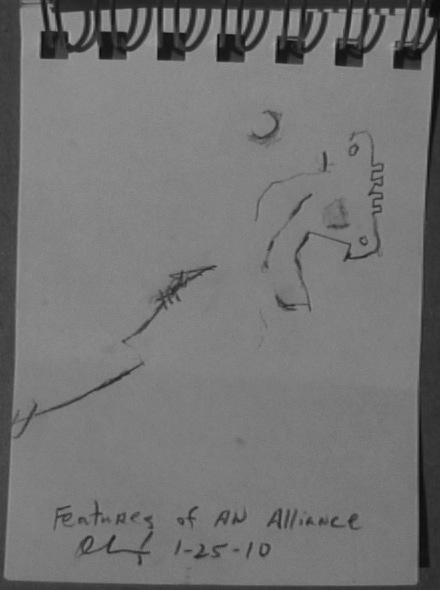 Features of AN Alliance
1-25-10